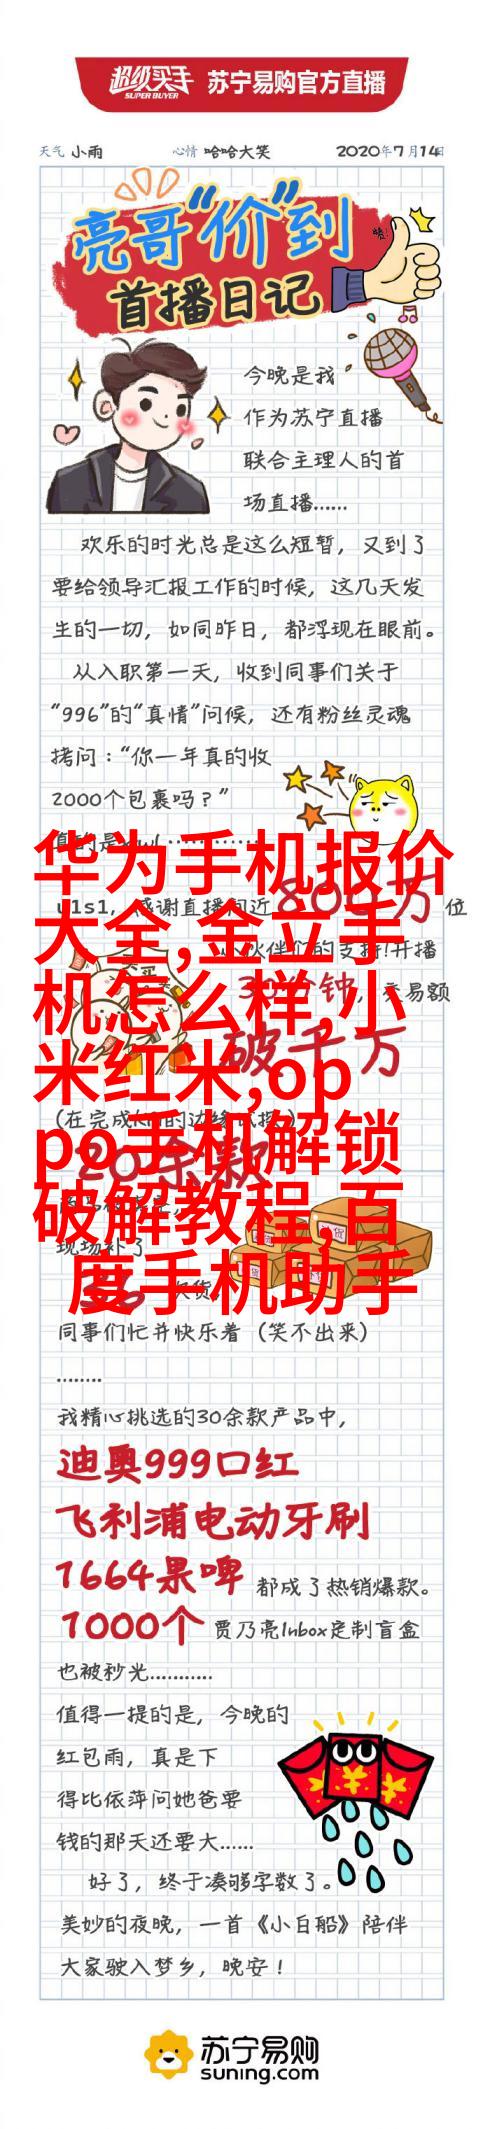 超级买手
SUPER BUYER
苏宁易购官方直播
天气 小雨 心情 哈哈大笑 2020年7月14日
亮哥"价"到
首播日记
今晚是我
作为苏宁直播
联合主理人的首
场直播……
欢乐的时光总是这么短暂，又到了
要给领导汇报工作的时候，这几天发
生的一切，如同昨日，都浮现在眼前。
从入职第一天，收到同事们关于
"996"的"真情"问候，还有粉丝灵魂
拷问："你一年真的收
2000个包裹吗？"
华为手机报价
大全,金立手
机怎么样,小
米红米,op
po手机解锁
破解教程,百
度手机助手
u1s1，感谢直播间近800万位
小伙伴们的支持!开播
30分钟，交易额
破千万
20余款
现场补了
同事们忙并快乐着（笑不出来）
........
我精心挑选的30余款产品中，
迪奥999口红
飞利浦电动牙刷
1664果啤 都成了热销爆款。
1000个 贾乃亮Inbox定制盲盒
也被秒光...........
值得一提的是，今晚的
红包雨，真是下
得比依萍问她爸要
钱的那天还要大......
好了，终于凑够字数了。
美妙的夜晚，一首《小白船》陪伴
大家驶入梦乡，晚安！
苏宁易购
suning.com